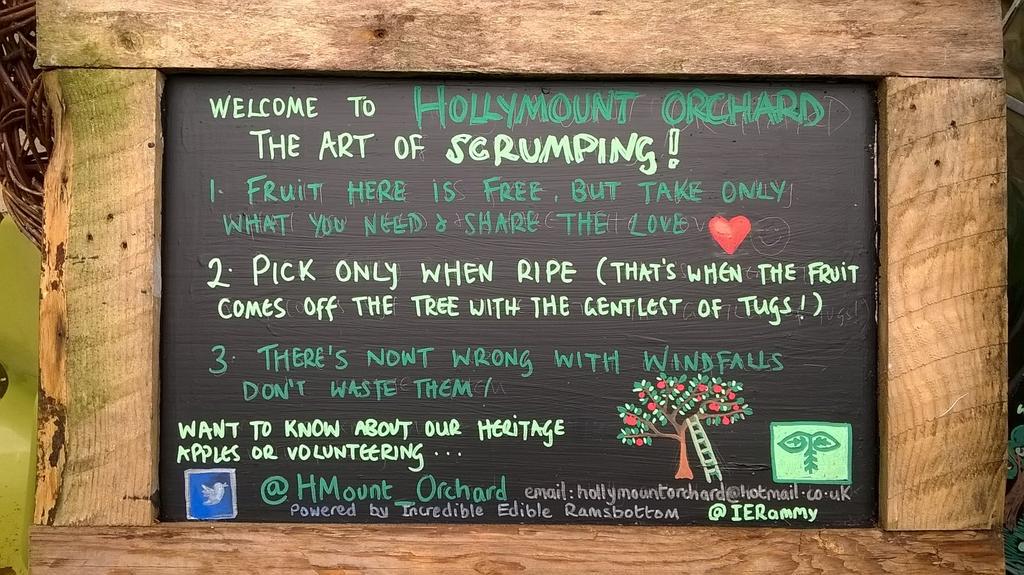 WELCOME TO HOLLYMOUNT ORCHARD
THE ART OF SCRUMPING!
1. FRUIT HERE IS FREE, BUT TAKE ONLY
WHAT YOU NEED & SHARE THE LOVE
2. PICK ONLY WHEN RIPE (THAT'S WHEN THE FRUIT
COMES OFF THE TREE WITH THE GENTLEST OF TUGS!)
3. THERE'S NOWT WRONG WITH WINDFALLS
DON'T WASTE THEM!
WANT TO KNOW ABOUT OUR HERITAGE
APPLES OR VOLUNTEERING ...
@HMount_Orchard email: hollymountorchard@hotmail.co.uk
Powered by Incredible Edible Ramsbottom @IERammy